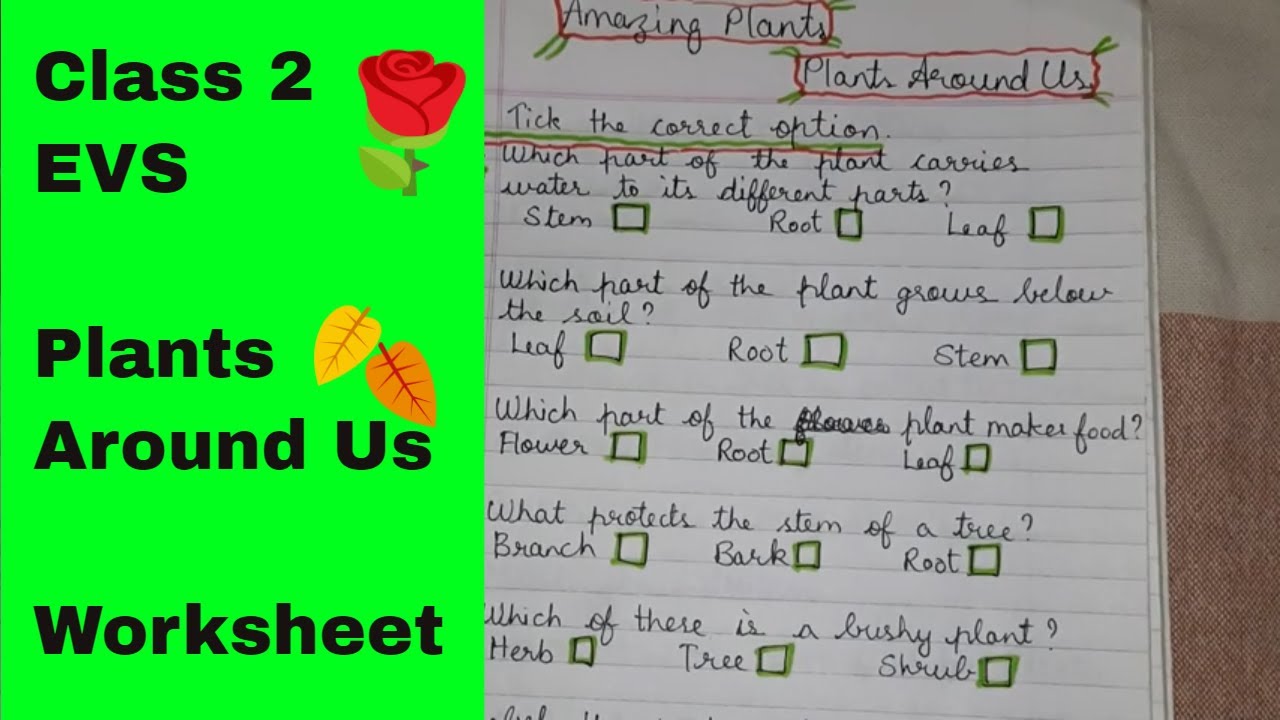 Class 2
EVS
Plants
Around Us
Worksheet
Amazing Plants
Plants Around Us
Tick the correct option.
Which part of the plant carries
water to its different parts?
Stem Root Leaf
Which part of the plant grows below
the soil?
Leaf Root Stem
Which part of the plant makes food?
Flower Root Leaf
What protects the stem of a tree?
Branch Bark Root
Which of these is a bushy plant?
Herb Tree Shrub